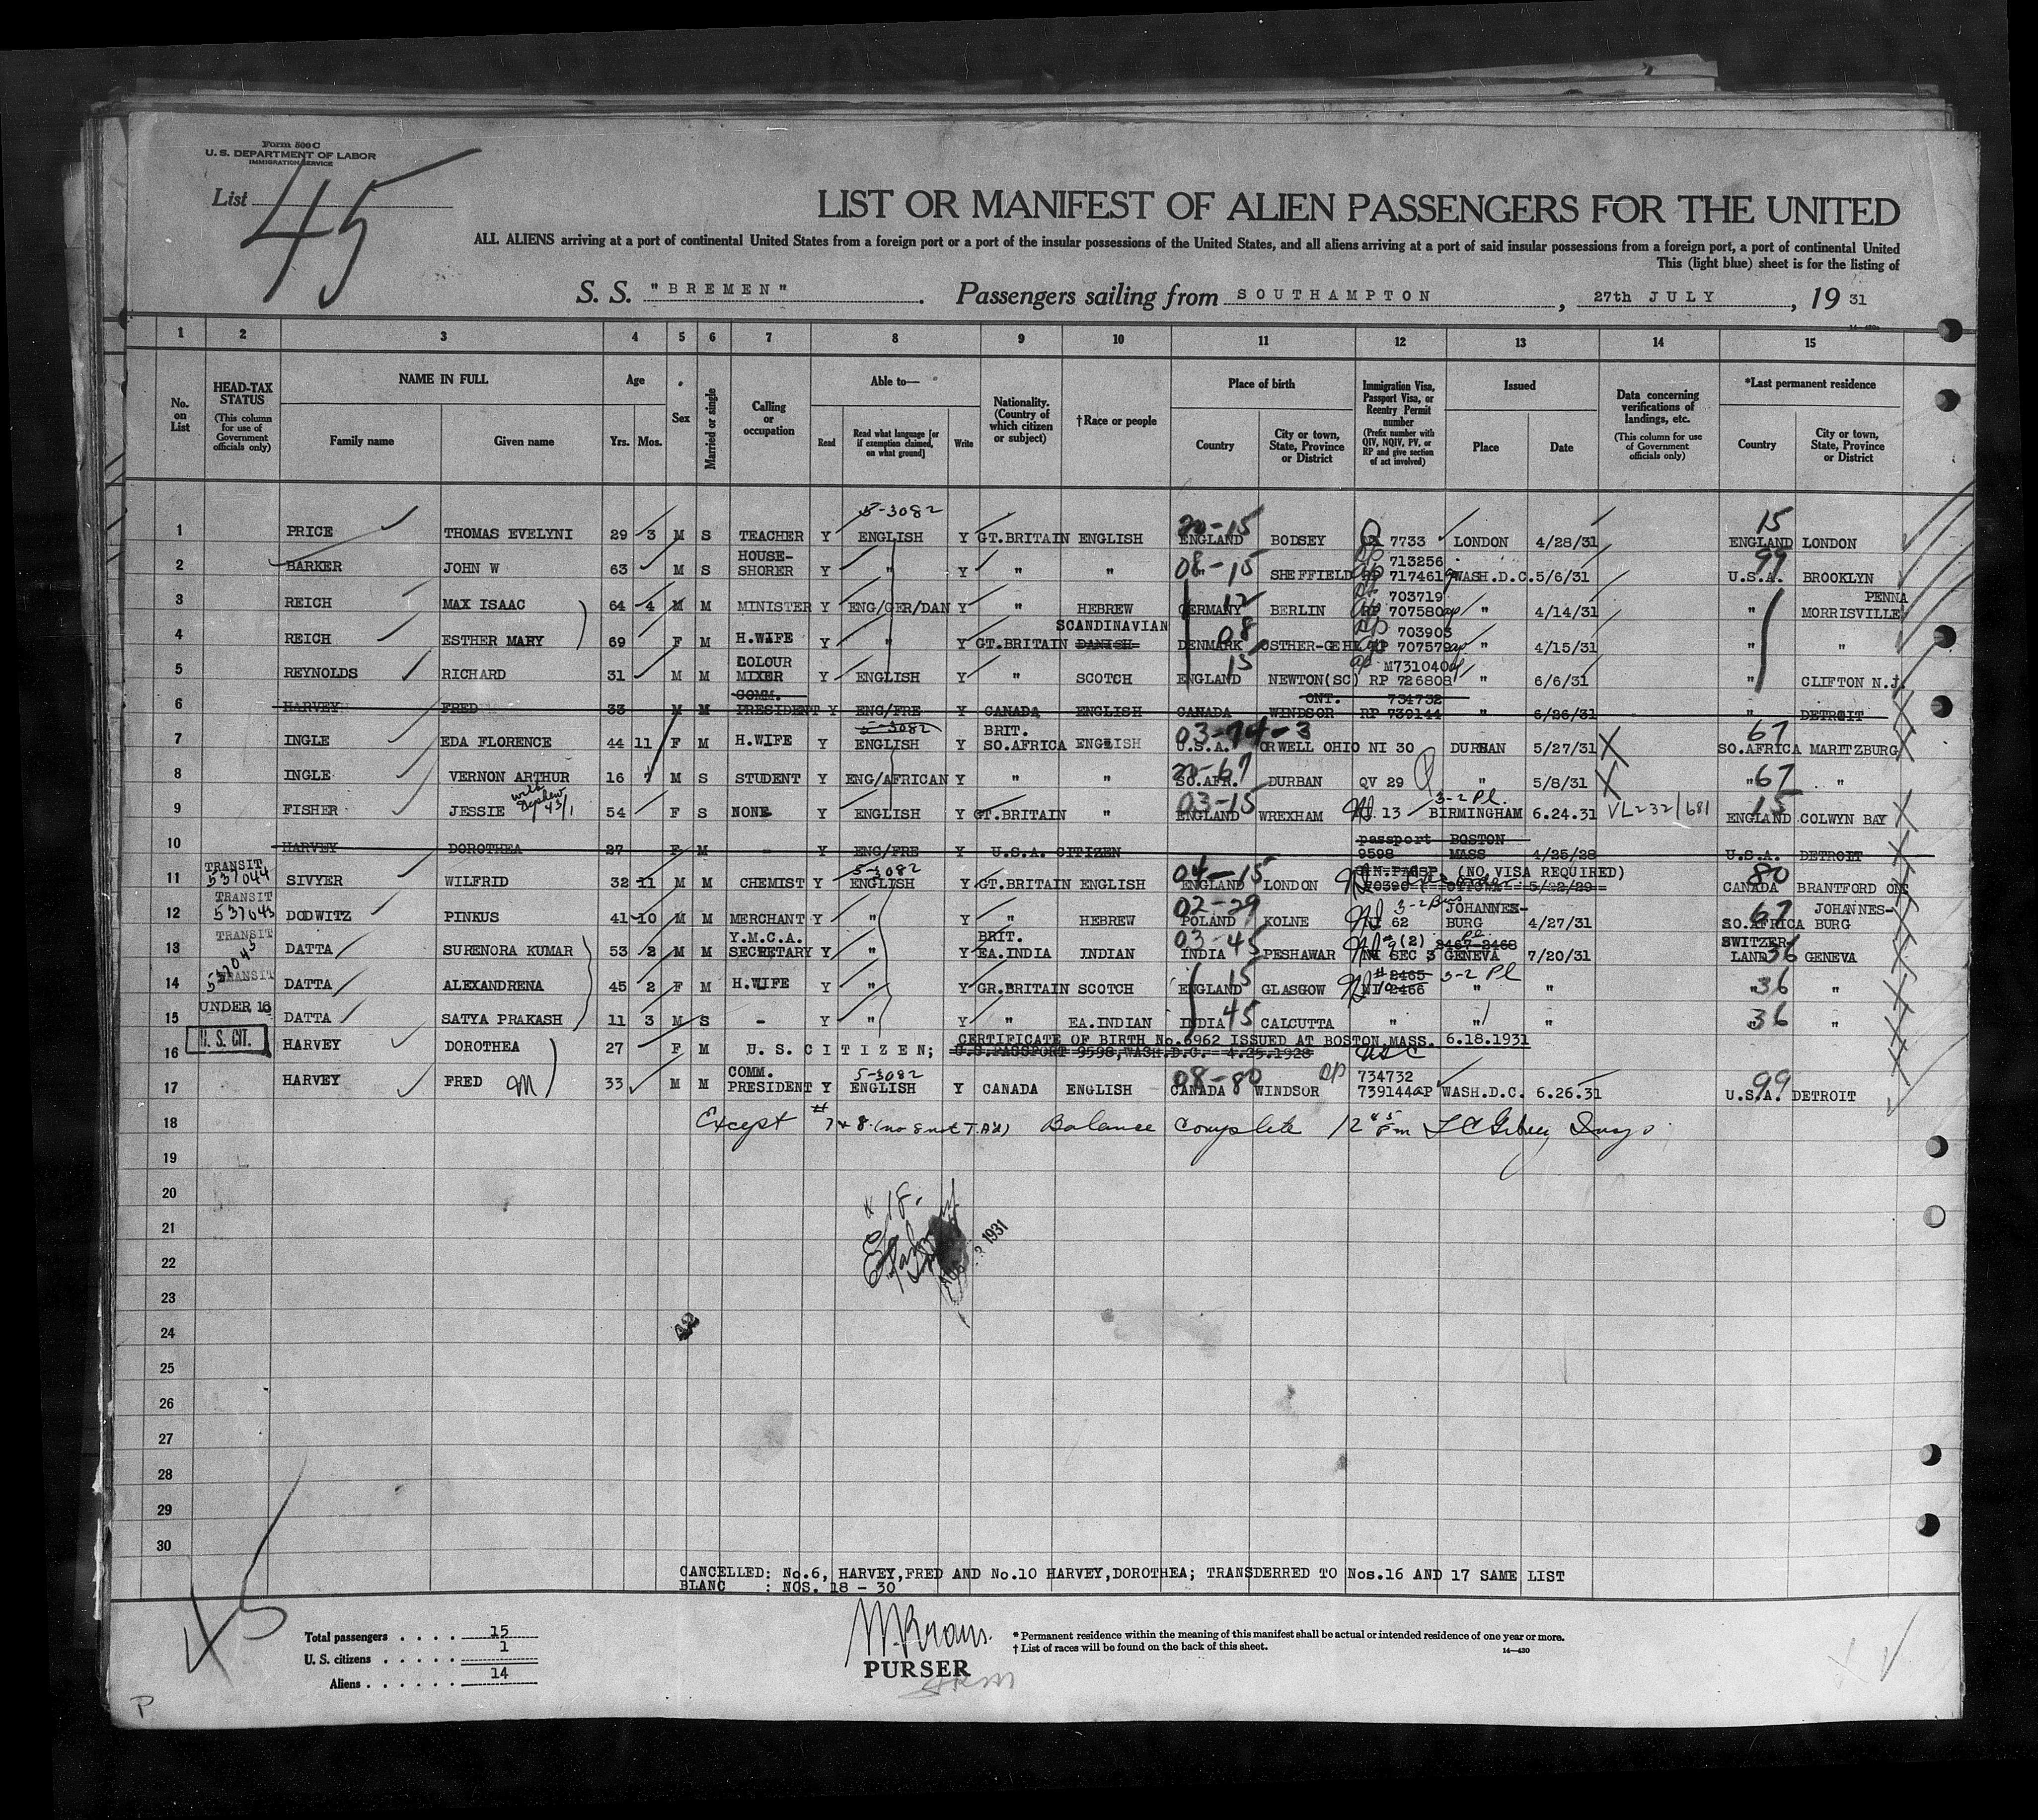 Form 500 C
U. S. DEPARTMENT OF LABOR
IMMIGRATION SERVICE
List 45
LIST OR MANIFEST OF ALIEN PASSENGERS FOR THE UNITED
ALL ALIENS arriving at a port of continental United States from a foreign port or a port of the insular possessions of the United States, and all aliens arriving at a port of said insular possessions from a foreign port, a port of continental United
This (light blue) sheet is for the listing of
S. S. "BREMEN" . Passengers sailing from SOUTHAMPTON , 27th JULY , 19 31
1 2 3 4 5 6 7 8 9 10 11 12 13 14 15
No. on List
HEAD-TAX STATUS (This column for use of Government officials only)
NAME IN FULL Family name Given name
Age Yrs. Mos.
Sex
Married or single
Calling or occupation
Able to— Read Read what language [or if exemption claimed, on what ground] Write
Nationality. (Country of which citizen or subject)
†Race or people
Place of birth Country City or town, State, Province or District
Immigration Visa, Passport Visa, or Reentry Permit number (Prefix number with QIV, NQIV, PV, or RP and give section of act involved)
Issued Place Date
Data concerning verifications of landings, etc. (This column for use of Government officials only)
*Last permanent residence Country City or town, State, Province or District
5-3082 15
1 PRICE THOMAS EVELYNI 29 3 M S TEACHER Y ENGLISH Y GT.BRITAIN ENGLISH ENGLAND BODSEY 7733 LONDON 4/28/31 ENGLAND LONDON
HOUSE- 08-15 713256 99
2 BARKER JOHN W 63 M S SHORER Y " Y " " " SHEFFIELD RP 717461 WASH.D.C. 5/6/31 U.S.A. BROOKLYN
12 703719 PENNA
3 REICH MAX ISAAC 64 4 M M MINISTER Y ENG/GER/DAN Y " HEBREW GERMANY BERLIN RP 707580 " 4/14/31 " MORRISVILLE
SCANDINAVIAN 08 703903
4 REICH ESTHER MARY 69 F M H.WIFE Y " Y GT.BRITAIN DANISH DENMARK OSTHER-GEHL RP 707579 " 4/15/31 " "
COLOUR 15 M731040
5 REYNOLDS RICHARD 31 M M MIXER Y ENGLISH Y " SCOTCH ENGLAND NEWTON(SC) RP 726808 " 6/6/31 " CLIFTON N.J.
COMM. ONT. 734732
6 HARVEY FRED 33 M M PRESIDENT Y ENG/FRE Y CANADA ENGLISH CANADA WINDSOR RP 739144 " 6/26/31 " DETROIT
5-3082 BRIT. 03-74-3 67
7 INGLE EDA FLORENCE 44 11 F M H.WIFE Y ENGLISH Y SO.AFRICA ENGLISH U.S.A. ORWELL OHIO NI 30 DURBAN 5/27/31 SO.AFRICA MARITZBURG
8 INGLE VERNON ARTHUR 16 7 M S STUDENT Y ENG/AFRICAN Y " " SO.AFR. DURBAN QV 29 " 5/8/31 " 67 "
with Nephew 43/1 03-15 3-2 Pl. 15
9 FISHER JESSIE 54 F S NONE Y ENGLISH Y GT.BRITAIN " ENGLAND WREXHAM 13 BIRMINGHAM 6.24.31 VL232/681 ENGLAND COLWYN BAY
passport BOSTON
10 HARVEY DOROTHEA 27 F M - Y ENG/FRE Y U.S.A. CITIZEN 9598 MASS 4/25/28 U.S.A. DETROIT
TRANSIT 537044 5-3082 04-15 (NO VISA REQUIRED) 80
11 SIVYER WILFRID 32 11 M M CHEMIST Y ENGLISH Y GT.BRITAIN ENGLISH ENGLAND LONDON 5/22/29 CANADA BRANTFORD ONT
TRANSIT 537043 02-29 3-2 Bus JOHANNES- 67 JOHANNES-
12 DODWITZ PINKUS 41 10 M M MERCHANT Y " Y " HEBREW POLAND KOLNE NI 62 BURG 4/27/31 SO.AFRICA BURG
TRANSIT 537045 Y.M.C.A. BRIT. 03-45 2467-2468 SWITZER-
13 DATTA SURENORA KUMAR 53 2 M M SECRETARY Y " Y EA.INDIA INDIAN INDIA PESHAWAR SEC 3 GENEVA 7/20/31 LAND 36 GENEVA
TRANSIT 15 #2465 3-2 Pl
14 DATTA ALEXANDRENA 45 2 F M H.WIFE Y " Y GR.BRITAIN SCOTCH ENGLAND GLASGOW NI 2466 " " " 36 "
UNDER 16
15 DATTA SATYA PRAKASH 11 3 M S - Y " Y " EA.INDIAN INDIA 45 CALCUTTA " " " " 36 "
U. S. CIT. CERTIFICATE OF BIRTH No.6962 ISSUED AT BOSTON MASS. 6.18.1931
16 HARVEY DOROTHEA 27 F M U. S. CITIZEN; U.S.PASSPORT 9598, WASH.D.C. 4.25.1928 USC
COMM. 5-3082 08-80 734732 99
17 HARVEY FRED M 33 M M PRESIDENT Y ENGLISH Y CANADA ENGLISH CANADA WINDSOR 739144 WASH.D.C. 6.26.31 U.S.A. DETROIT
18 Except # 7 & 8 Balance complete 12 45 pm
19
20
# 18.
21
AUG 1931
22
23
24
25
26
27
28
29
30
CANCELLED: No.6, HARVEY,FRED AND No.10 HARVEY,DOROTHEA; TRANSDERRED TO Nos.16 AND 17 SAME LIST
BLANC : NOS. 18 - 30
45
Total passengers . . . . 15
U. S. citizens . . . . . 1
Aliens . . . . . . 14
PURSER
* Permanent residence within the meaning of this manifest shall be actual or intended residence of one year or more.
† List of races will be found on the back of this sheet.
14—430
P